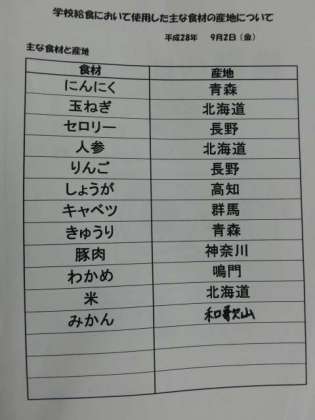 学校給食において使用した主な食材の産地について
平成28年 9月2日（金）
主な食材と産地
食材 産地
にんにく 青森
玉ねぎ 北海道
セロリー 長野
人参 北海道
りんご 長野
しょうが 高知
キャベツ 群馬
きゅうり 青森
豚肉 神奈川
わかめ 鳴門
米 北海道
みかん 和歌山